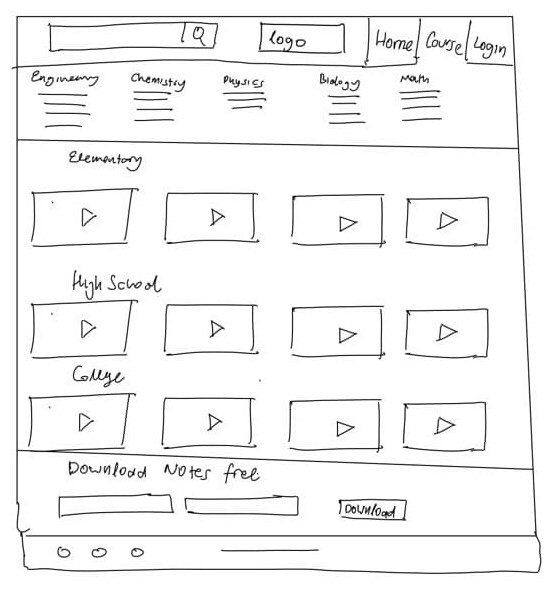 Logo Home Course Login
Engineering Chemistry Physics Biology Math
Elementary
High School
College
Download Notes free
Download